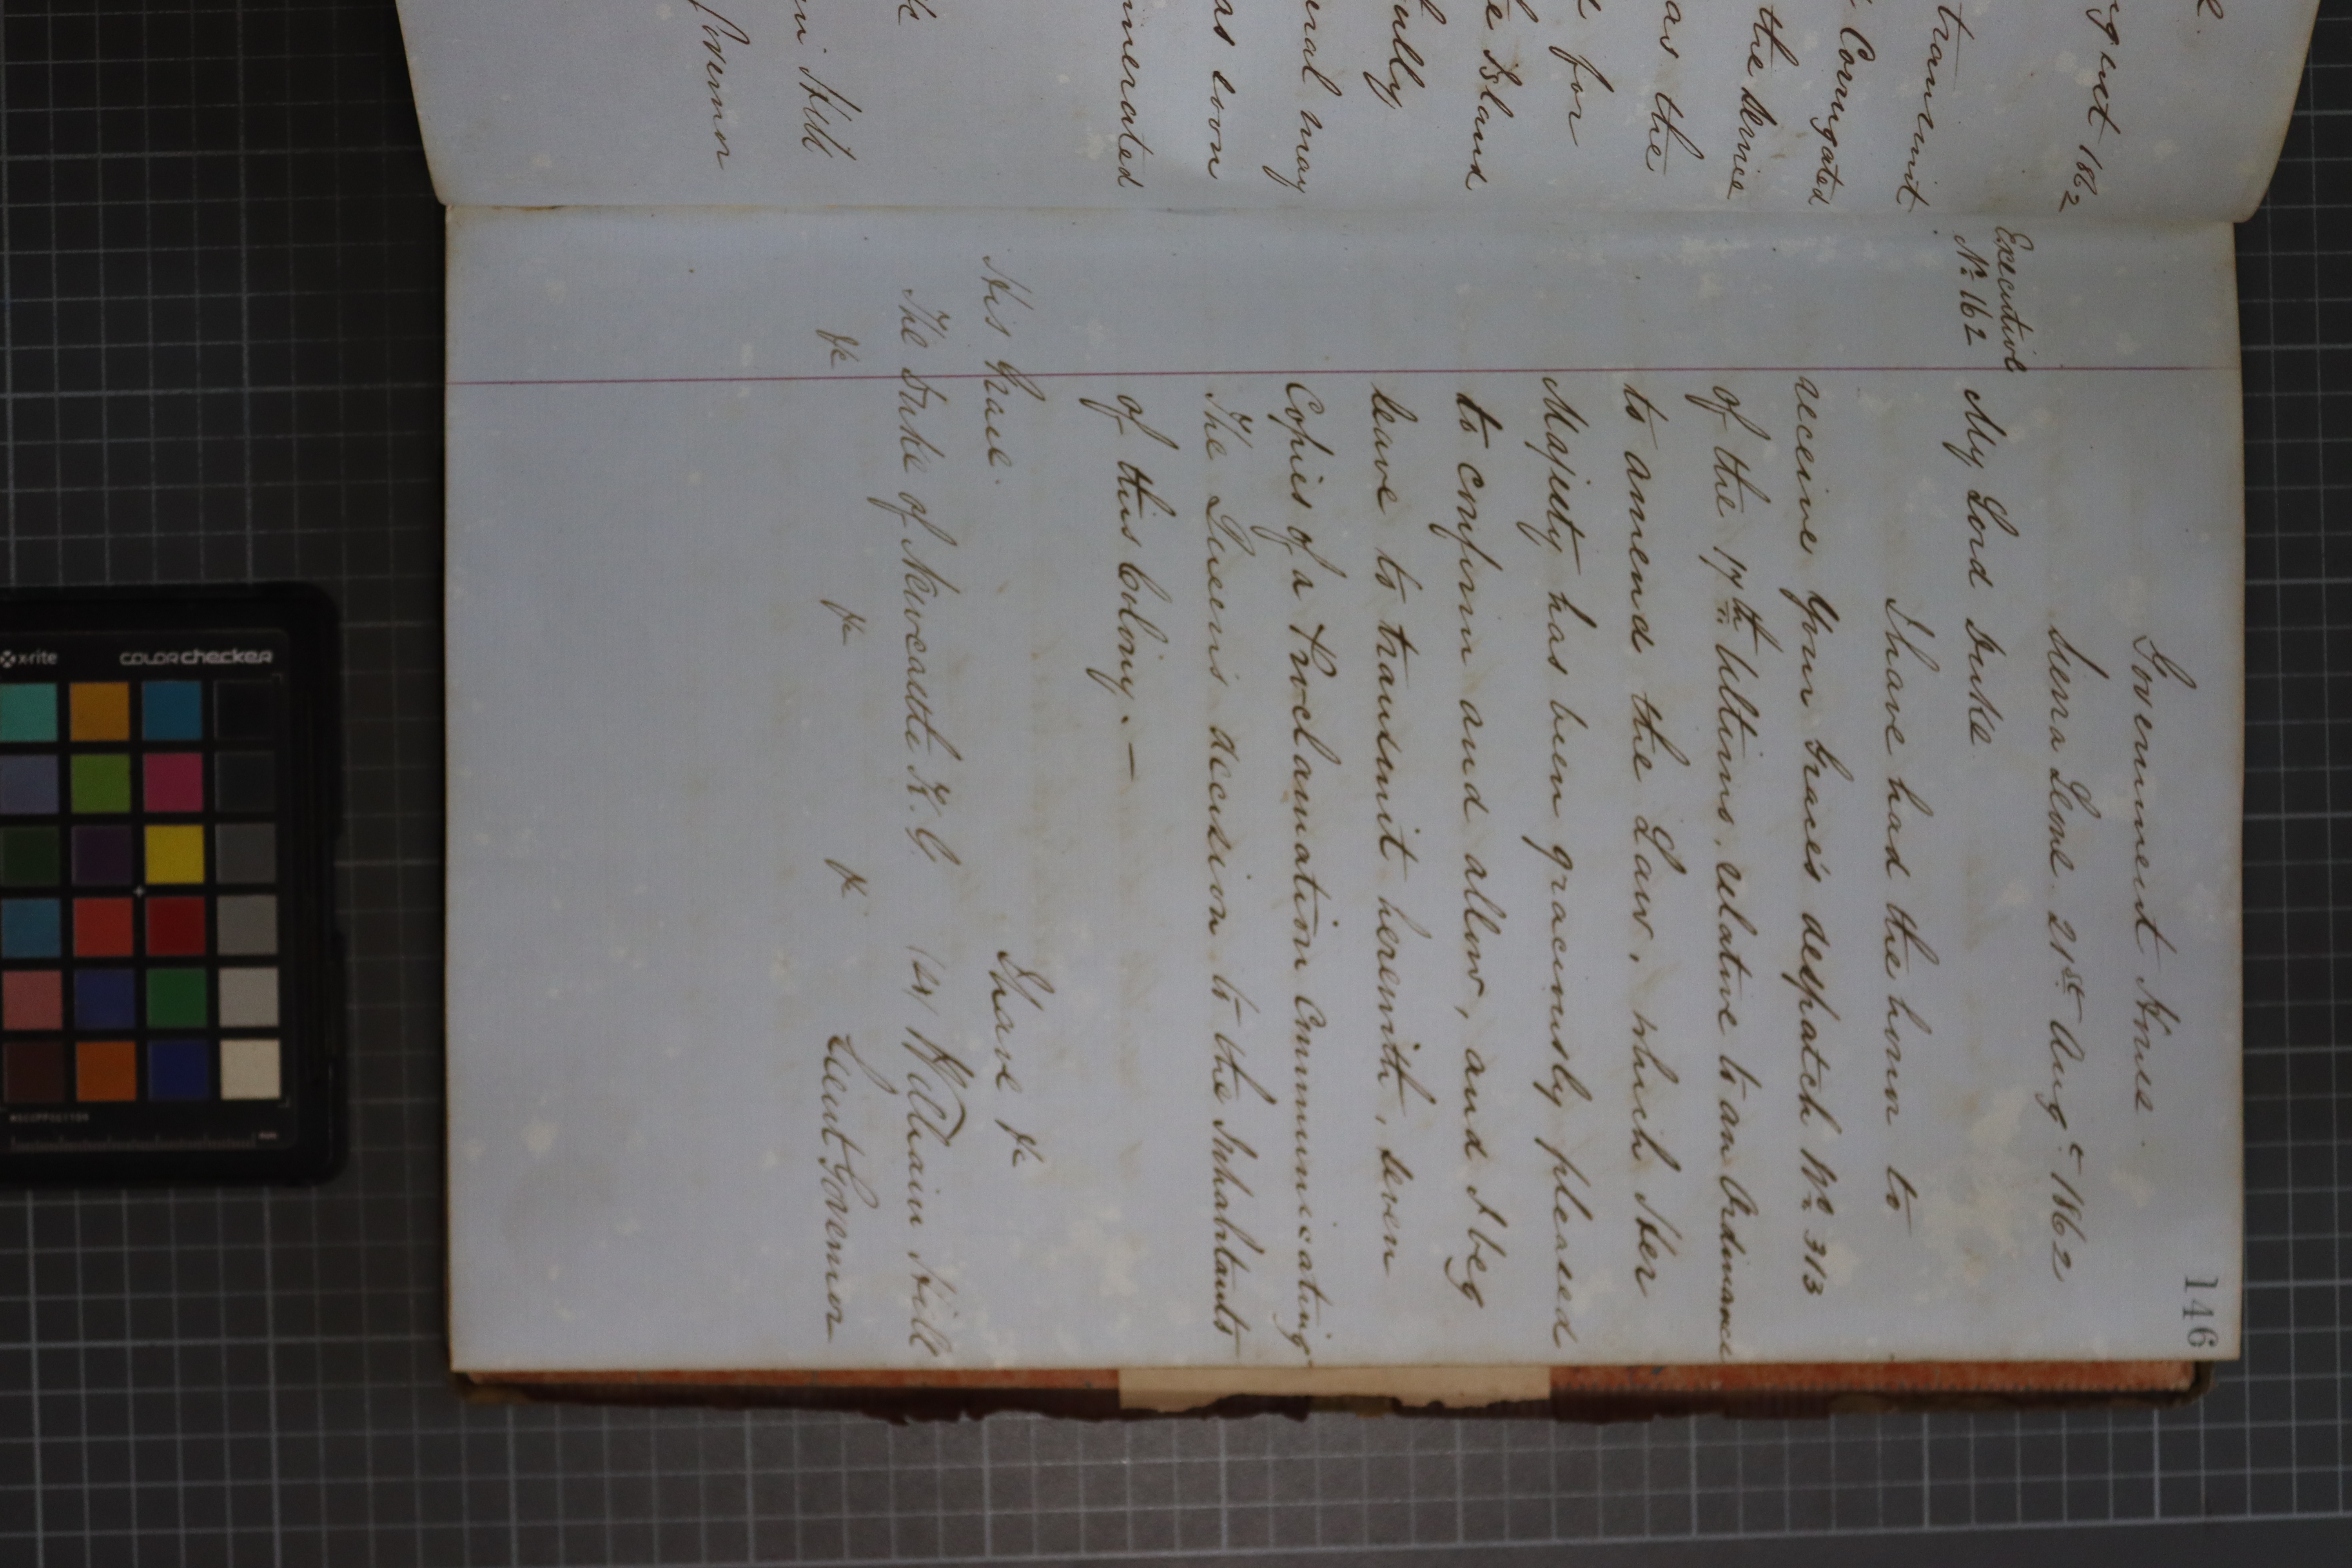 146
Government House.
Sierra Leone 21st Augt 1862
Executive
No. 162
My Lord Duke
I have had the honor to
receive Your Grace's despatch No. 313
of the 17th Ultimo, relative to an Ordinance
to amend the Law, which Her
Majesty has been graciously pleased
to confirm and allow, and I beg
leave to transmit herewith, seven
Copies of a Proclamation Communicating
The Queen's decision to the Inhabitants
of this Colony. —
I have &c
His Grace
The Duke of Newcastle K. G. William Hill
&c &c &c Lieut Governor
1862
transmit
Corrugated
the Service
as the
for
Island
may
as soon
Hill
x-rite colorchecker